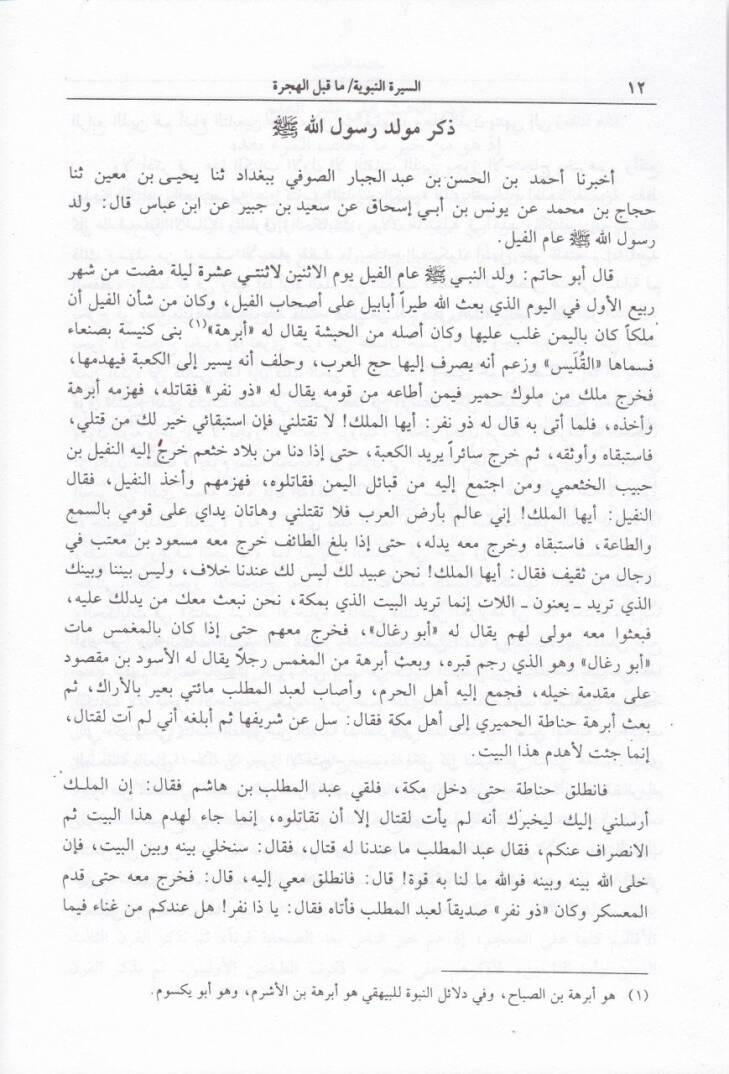 ١٢
السيرة النبوية/ ما قبل الهجرة
ذكر مولد رسول الله ﷺ
أخبرنا أحمد بن الحسن بن عبد الجبار الصوفي ببغداد ثنا يحيى بن معين ثنا
حجاج بن محمد عن يونس بن أبي إسحاق عن سعيد بن جبير عن ابن عباس قال: ولد
رسول الله ﷺ عام الفيل.
قال أبو حاتم: ولد النبي ﷺ عام الفيل يوم الاثنين لاثنتي عشرة ليلة مضت من شهر
ربيع الأول في اليوم الذي بعث الله طيراً أبابيل على أصحاب الفيل، وكان من شأن الفيل أن
ملكاً كان باليمن غلب عليها وكان أصله من الحبشة يقال له «أبرهة»(١) بنى كنيسة بصنعاء
فسماها «القُلَيس» وزعم أنه يصرف إليها حج العرب، وحلف أنه يسير إلى الكعبة فيهدمها،
فخرج ملك من ملوك حمير فيمن أطاعه من قومه يقال له «ذو نفر» فقاتله، فهزمه أبرهة
وأخذه، فلما أتى به قال له ذو نفر: أيها الملك! لا تقتلني فإن استبقائي خير لك من قتلي،
فاستبقاه وأوثقه، ثم خرج سائراً يريد الكعبة، حتى إذا دنا من بلاد خثعم خرج إليه النفيل بن
حبيب الخثعمي ومن اجتمع إليه من قبائل اليمن فقاتلوه، فهزمهم وأخذ النفيل، فقال
النفيل: أيها الملك! إني عالم بأرض العرب فلا تقتلني وهاتان يداي على قومي بالسمع
والطاعة، فاستبقاه وخرج معه يدله، حتى إذا بلغ الطائف خرج معه مسعود بن معتب في
رجال من ثقيف فقال: أيها الملك! نحن عبيد لك ليس لك عندنا خلاف، وليس بيننا وبينك
الذي تريد ـ يعنون ـ اللات إنما تريد البيت الذي بمكة، نحن نبعث معك من يدلك عليه،
فبعثوا معه مولى لهم يقال له «أبو رغال»، فخرج معهم حتى إذا كان بالمغمس مات
«أبو رغال» وهو الذي رجم قبره، وبعث أبرهة من المغمس رجلاً يقال له الأسود بن مقصود
على مقدمة خيله، فجمع إليه أهل الحرم، وأصاب لعبد المطلب مائتي بعير بالأراك، ثم
بعث أبرهة حناطة الحميري إلى أهل مكة فقال: سل عن شريفها ثم أبلغه أني لم آت لقتال،
إنما جئت لأهدم هذا البيت.
فانطلق حناطة حتى دخل مكة، فلقي عبد المطلب بن هاشم فقال: إن الملك
أرسلني إليك ليخبرك أنه لم يأت لقتال إلا أن تقاتلوه، إنما جاء لهدم هذا البيت ثم
الانصراف عنكم، فقال عبد المطلب ما عندنا له قتال، فقال: سنخلي بينه وبين البيت، فإن
خلى الله بينه وبينه فوالله ما لنا به قوة! قال: فانطلق معي إليه، قال: فخرج معه حتى قدم
المعسكر وكان «ذو نفر» صديقاً لعبد المطلب فأتاه فقال: يا ذا نفر! هل عندكم من غناء فيما
(١) هو أبرهة بن الصباح، وفي دلائل النبوة للبيهقي هو أبرهة بن الأشرم، وهو أبو يكسوم.